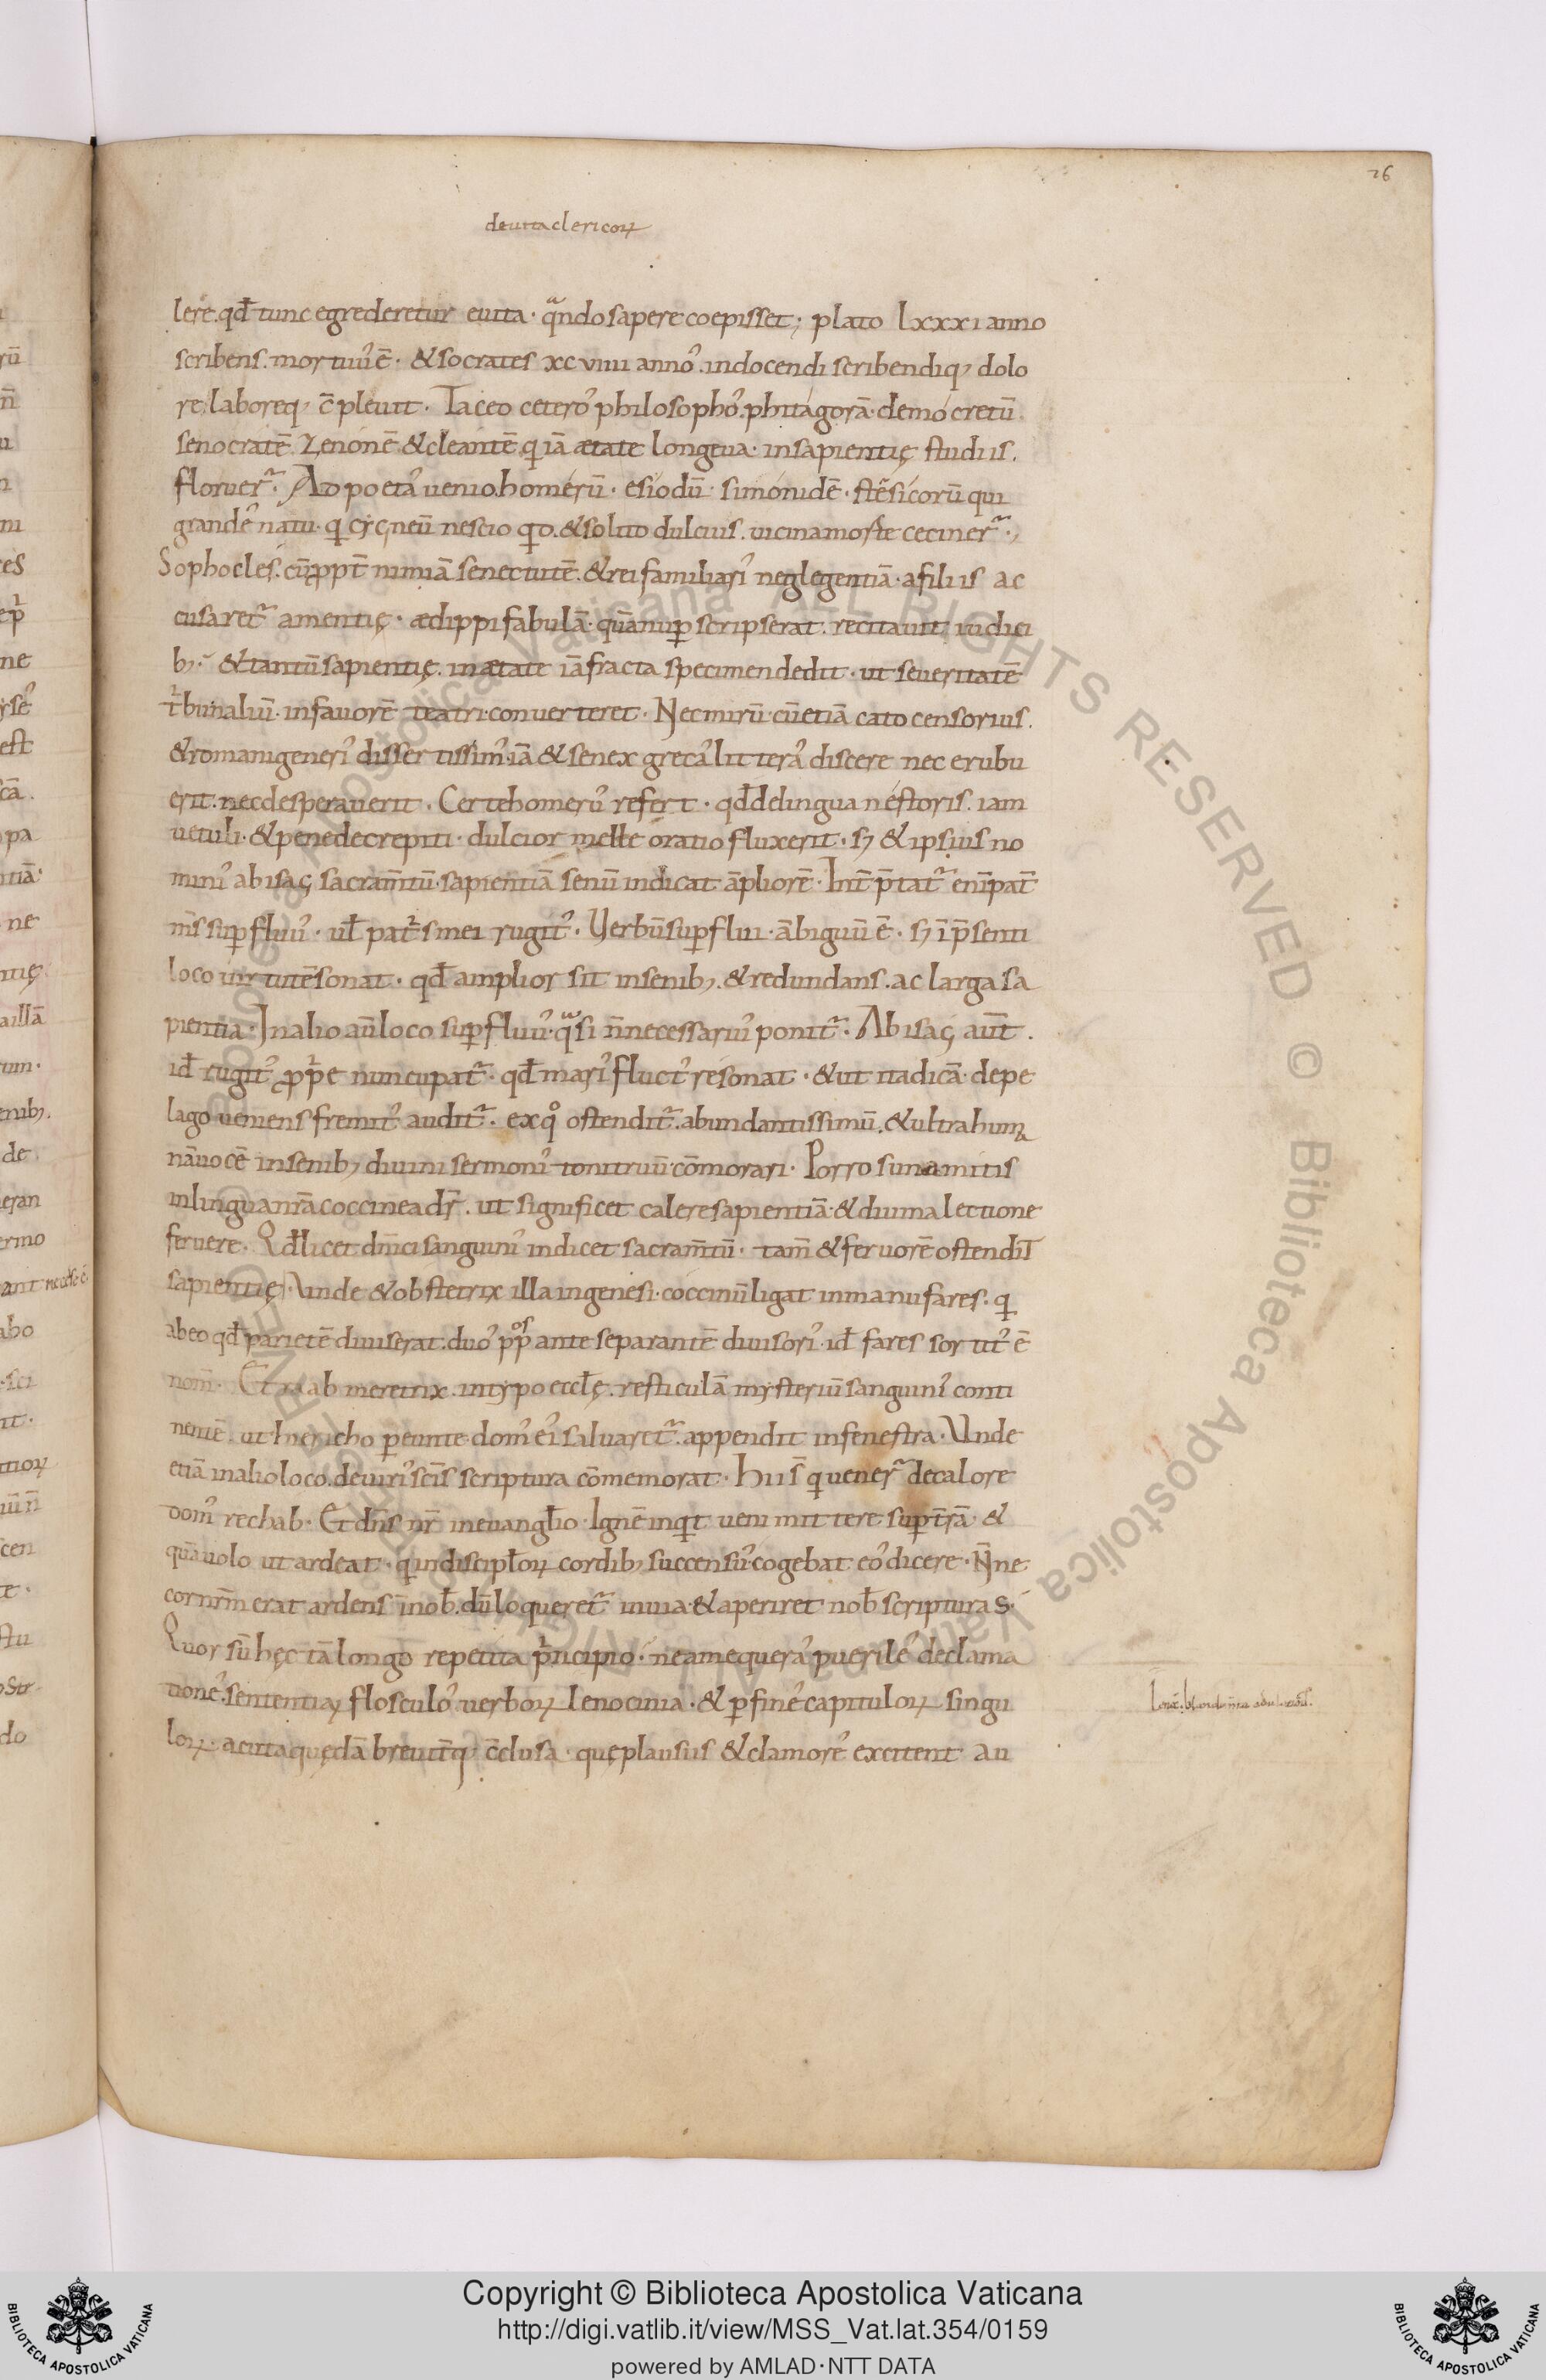 76
de uita clericoꝝ
lere. qđ tunc egrederetur e uita · qͣndo sapere coepisset; plato lxxxi anno
scribens. mortuuꝰ ē · & socrates xcviiii annoꝰ. in docendi scribendiq; dolo
re. laboreq; c̄pleuit · Taceo ceteroꝰ philosophoꝰ. phitágorā. demócretū.
senocratē. Zenónē & cleantē q iā ætate longeua · in sapientię studiis.
floruer̄ · Ad poetaꝰ uenio. homérū · esiodū · simónidē · stēsícorū qui
grandeꝰ natu · q cẏgneū nescio qd. & solito dulcius. uicina morte ceciner̄ ·
Sophocles. cū ꝓpt̄ nimiā senectutē. & rei familiariꝰ neglegentiā · a filiis ac
cusaret̄ amentię · ædippi fabulā · quā nuꝑ scripserat. recitauit iudici
b; · & tantū sapientię. in ætate iā fracta specimen dedit · ut seueritatē
tͥbunaliū · in fauorē teatri conuerteret · Nec mirū · cū etiā cato censorius.
& romani generiꝰ dissertissimꝰ. iā & senex grecaꝰ litteraꝰ discere nec erubu
erit. nec desperauerit · Certe homeruꝰ refert · qđ de lingua néstoris. iam
uetuli · & pene decrepiti · dulcior melle oratio fluxerit · s; & ipsius no
miniꝰ abisag sacram̄tū · sapientiā senū indicat āpliorē · Int̄p̄tat̄ eni pat̄
m̄s suꝑfluuꝰ · uł pat̄s mei rugitꝰ. Verbū suꝑflui · ābiguū ē · s; ī p̄senti
loco uirtutē sonat · qđ amplior sit in senib; & redundans. ac larga sa
pientia · In alio aū loco suꝑfluuꝰ · qͣsi n̄ necessariuꝰ ponit̄ · Abisag aut̄.
id rugitꝰ ꝓpͥe nuncupat̄ · qđ mariꝰ fluctꝰ resonat · & ut ita dicā · de pe
lago ueniens fremitꝰ audit̄. ex qͦ ostendit̄. abundantissimū. & ultra huma
nā uocē in senib; diuini sermoniꝰ tonitruū cōmorari · Porro sunamitis
in lingua nr̄a coccinea dr̄. ut significet calere sapientiā · & diuina lectione
feruere · Qđ licet dn̄ici sanguiniꝰ indicet sacram̄tū · tam̄ & feruorē ostendit
sapientię. Vnde & obstetrix illa in genesi · coccinū ligat in manu fares · q
ab eo qđ parietē diuiserat. duoꝰ pp̄os ante separantē diuisoriꝰ id fares sortitꝰ ē
nom̄ · Et raab meretrix. in tẏpo eccłę. resticulā mẏsteriū sanguiniꝰ conti
nentē. ut hiericho ꝑeunte domꝰ eiꝰ saluaret̄. appendit in fenestra · Vnde
etiā in alio loco. de uiriꝰ sc̄is scriptura cōmemorat · Hii s̄ q uener̄ de calore
domꝰ rechab · Et dn̄s nr̄ in euangłio · Ignē inqt ueni mittere suꝑ tr̄ā · &
quā uolo ut ardeat · q in discipłoꝝ cordib; succensuꝰ cogebat eoꝰ dicere · N̄ne
cor nr̄m erat ardens in nob̄. dū loqueret̄ in uia · & aperiret nob̄ scripturas ·
Quorsū hęc tā longo repetita pͥncipio · ne a me queraꝰ puerileꝰ declama
tioneꝰ. sententiaꝝ flosculoꝰ uerboꝝ lenocinia · & ꝑ fineꝰ capituloꝝ singu
loꝝ · acuta quędā breuit̄q; c̄clusa · quę plausus & clamoreꝰ excitent au